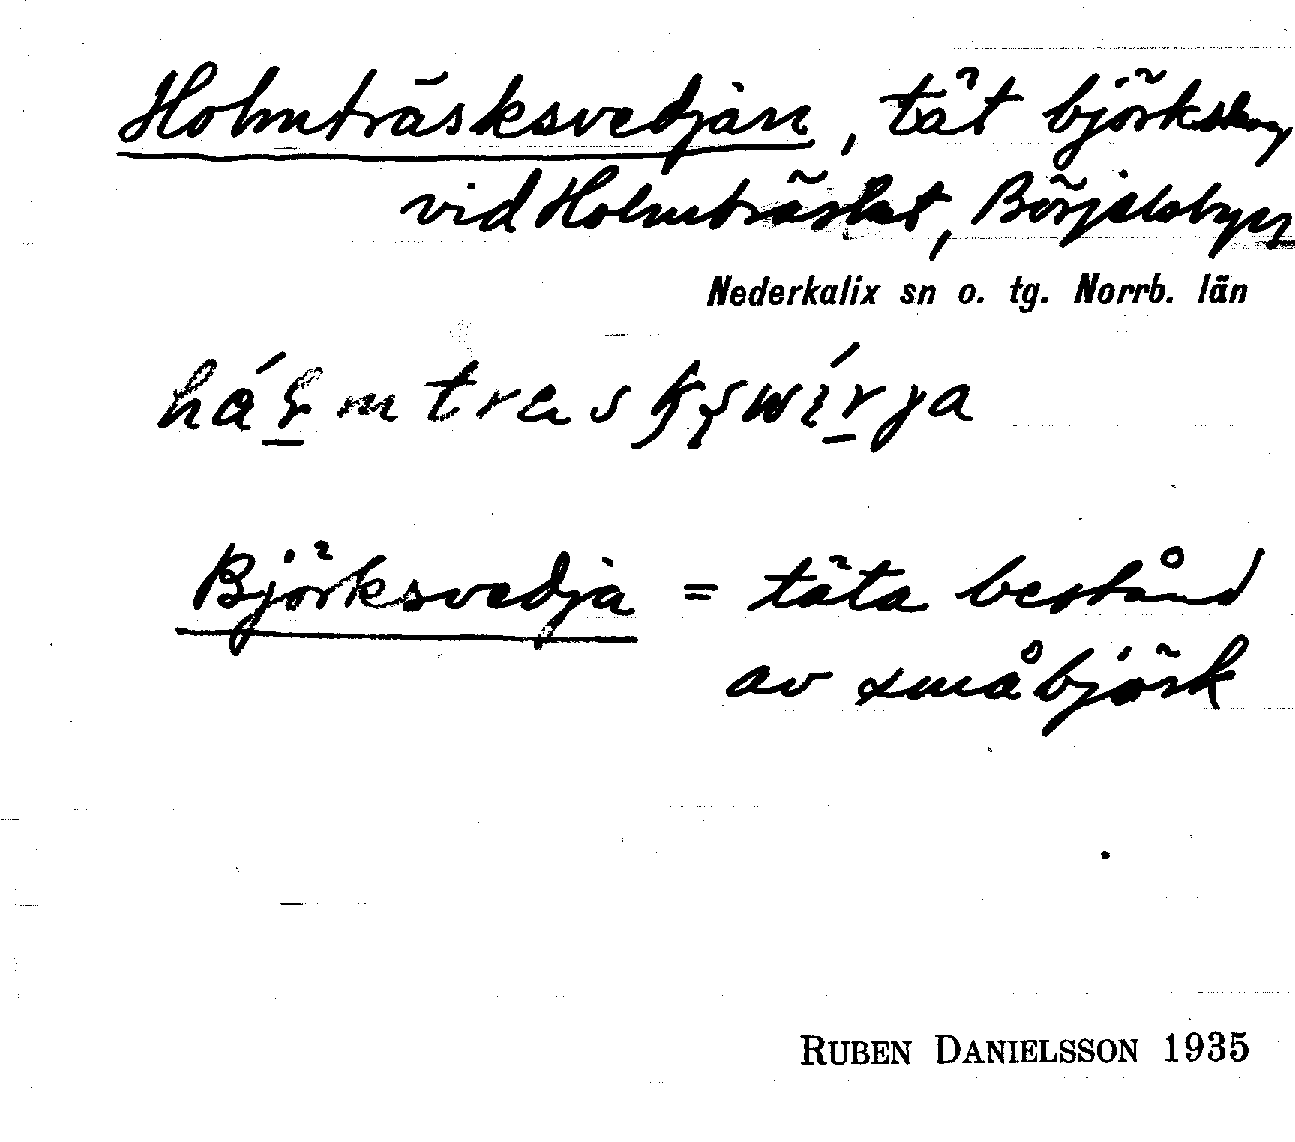 Holmträsksvedjan, tät björkskog
vid Holmträsket, Börjelsbyn
Nederkalix sn o. tg. Norrb. län
Björksvedja = täta bestånd
av småbjörk
RUBEN DANIELSSON 1935